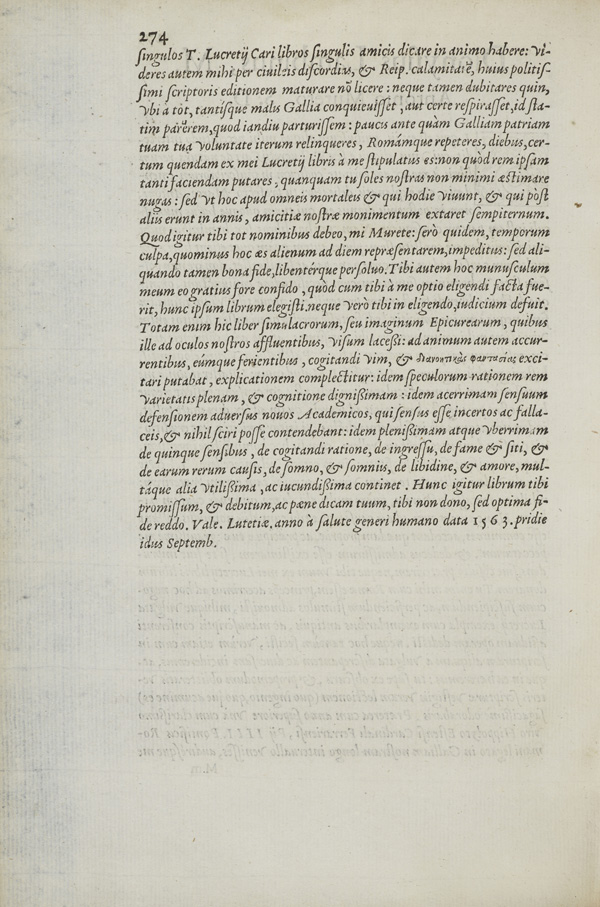 274
singulos T. Lucretij Cari libros singulis amicis dicare in animo habere: vi-
deres autem mihi per ciuileis discordias, & Reip. calamitatē, huius politis-
simi scriptoris editionem maturare nō licere: neque tamen dubitares quin,
vbi à tot, tantisque malis Gallia conquieuisset, aut certe respirasset, id sta-
tim parerem, quod iandiu parturissem: paucis ante quàm Galliam patriam
tuam tua voluntate iterum relinqueres, Romámque repeteres, diebus, cer-
tum quendam ex mei Lucretij libris à me stipulatus es: non quòd rem ipsam
tanti faciendam putares, quanquam tu soles nostras non minimi æstimare
nugas: sed vt hoc apud omneis mortaleis & qui hodie viuunt, & qui pòst
aliis erunt in annis, amicitiæ nostræ monimentum extaret sempiternum.
Quod igitur tibi tot nominibus debeo, mi Murete: serò quidem, temporum
culpa, quominus hoc æs alienum ad diem repræsentarem, impeditus: sed ali-
quando tamen bona fide, libentérque persoluo. Tibi autem hoc munusculum
meum eo gratius fore confido, quòd cum tibi à me optio eligendi facta fue-
rit, hunc ipsum librum elegisti. neque verò tibi in eligendo, iudicium defuit.
Totam enim hic liber simulacrorum, seu imaginum Epicurearum, quibus
ille ad oculos nostros affluentibus, visum lacessi: ad animum autem accur-
rentibus, eúmque ferientibus, cogitandi vim, & διανοητικὰς φαντασίας exci-
tari putabat, explicationem complectitur: idem speculorum rationem rem
varietatis plenam, & cognitione dignißimam: idem acerrimam sensuum
defensionem aduersus nouos Academicos, qui sensus esse incertos ac falla-
ceis, & nihil sciri posse contendebant: idem plenißimam atque vberrimam
de quinque sensibus, de cogitandi ratione, de ingressu, de fame & siti, &
de earum rerum causis, de somno, & somniis, de libidine, & amore, mul-
táque alia vtilißima, ac iucundißima continet. Hunc igitur librum tibi
promissum, & debitum, ac pæne dicam tuum, tibi non dono, sed optima fi-
de reddo. Vale. Lutetiæ. anno à salute generi humano data 1563. pridie
idus Septemb.